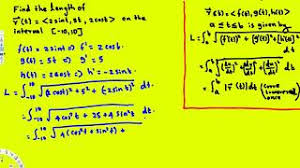 Find the length of
r⃗(t) = <2sint, 5t, 2cost> on the
interval [-10,10]
f(t) = 2sint ⇒ f' = 2cost
g(t) = 5t ⇒ g' = 5
h(t) = 2cost ⇒ h' = -2sint
L = ∫₋₁₀¹⁰ √((2cost)² + 5² + (-2sint)²) dt
= ∫₋₁₀¹⁰ √(4cos²t + 25 + 4sin²t) dt
= ∫₋₁₀¹⁰ √(4(cos²t + sin²t) +
r⃗(t) = <f(t), g(t), h(t)>
a ≤ t ≤ b is given by
L = ∫ₐᵇ √([f'(t)]² + [g'(t)]² + [h'(t)]²) dt
= ∫ₐᵇ √((dx/dt)² + (dy/dt)² + (dz/dt)²) dt
= ∫ₐᵇ |r⃗'(t)| dt (curve
once)